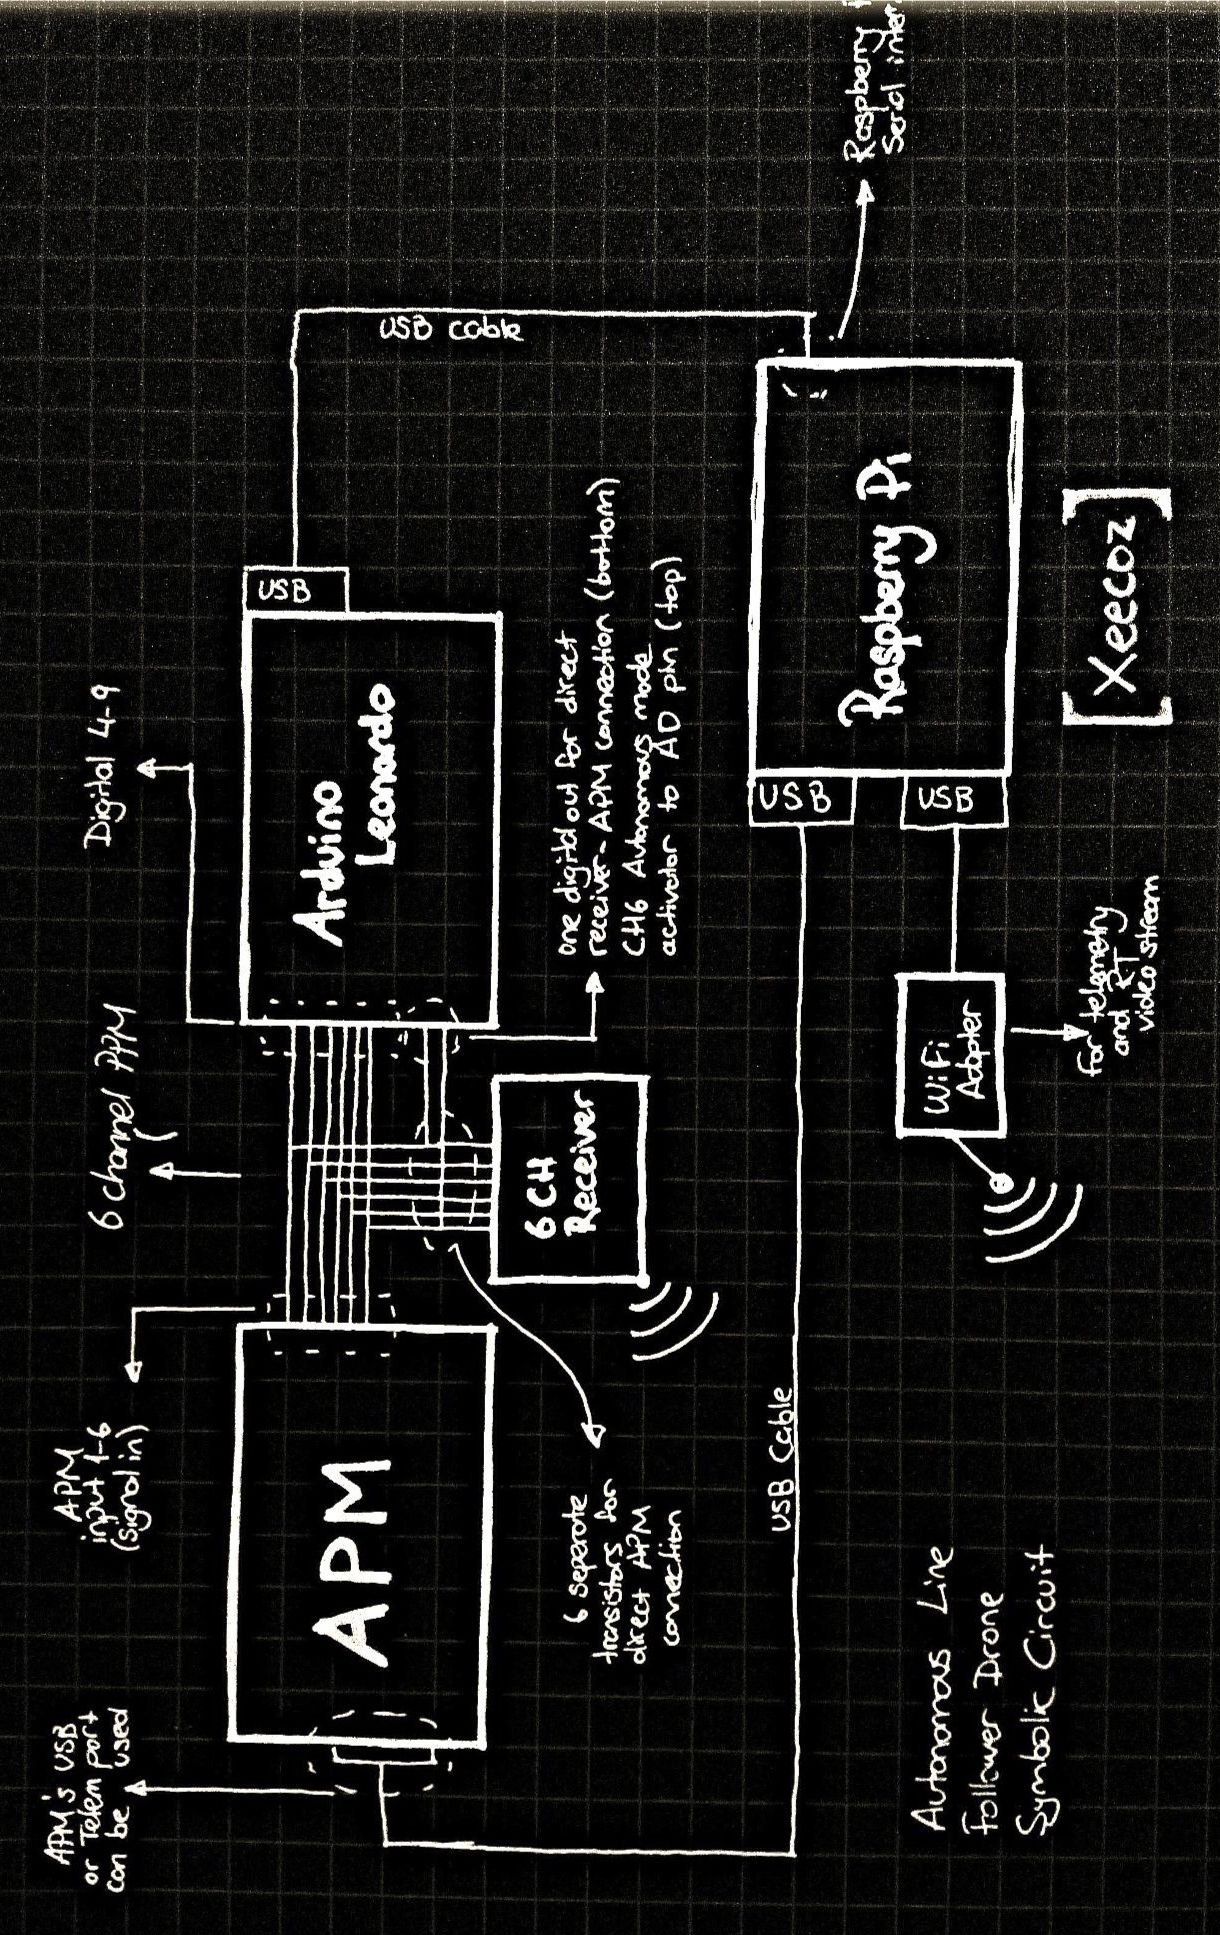 APM's USB
or Telem port
can be used
APM
input 1-6
(signal in)
6 channel PPM
Digital 4-9
APM
Arduino
Leonardo
USB
USB cable
6 CH
Receiver
6 seperate
transistors for
direct APM
connection
one digital out for direct
receiver-APM connection (bottom)
CH6 Autonomous mode
activator to AD pin (top)
USB Cable
USB
USB
Raspberry Pi
Raspberry
Serial
WiFi
Adapter
for telemetry
and RT
video stream
Autonomous Line
Follower Drone
Symbolic Circuit
[Xeecoz]